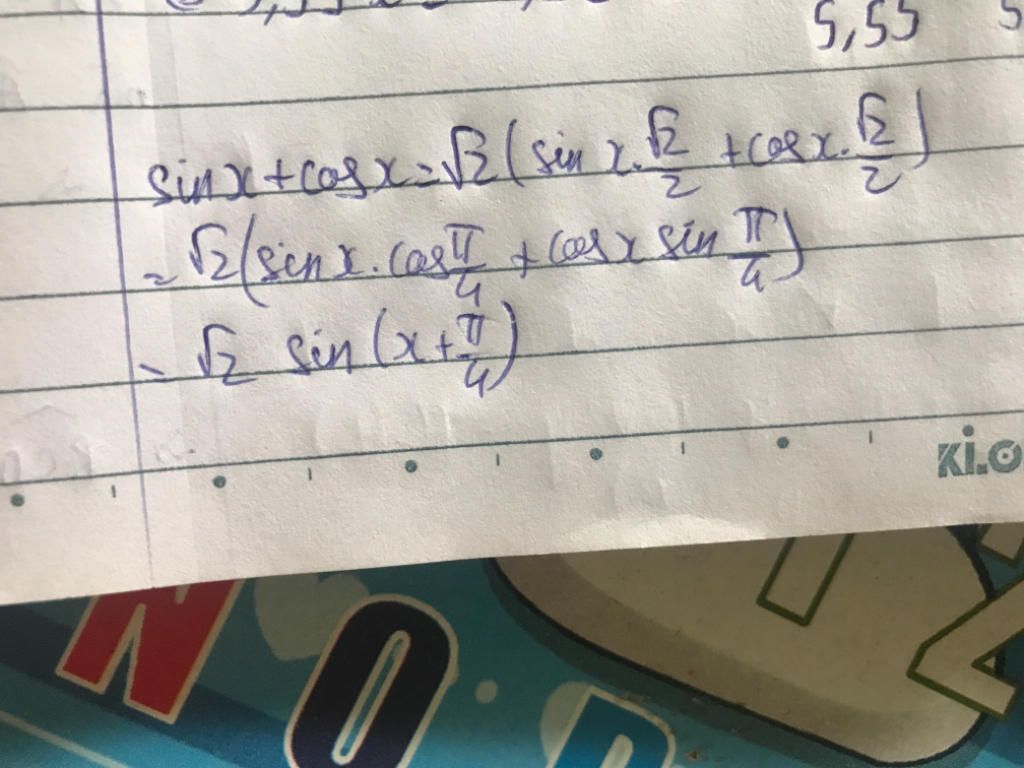 5,55 5
sinx+cosx=√2(sin x.√2/2 +cosx.√2/2)
=√2(sinx.cosπ/4 + cosx sin π/4)
=√2 sin(x+π/4)
Ki.O
NO